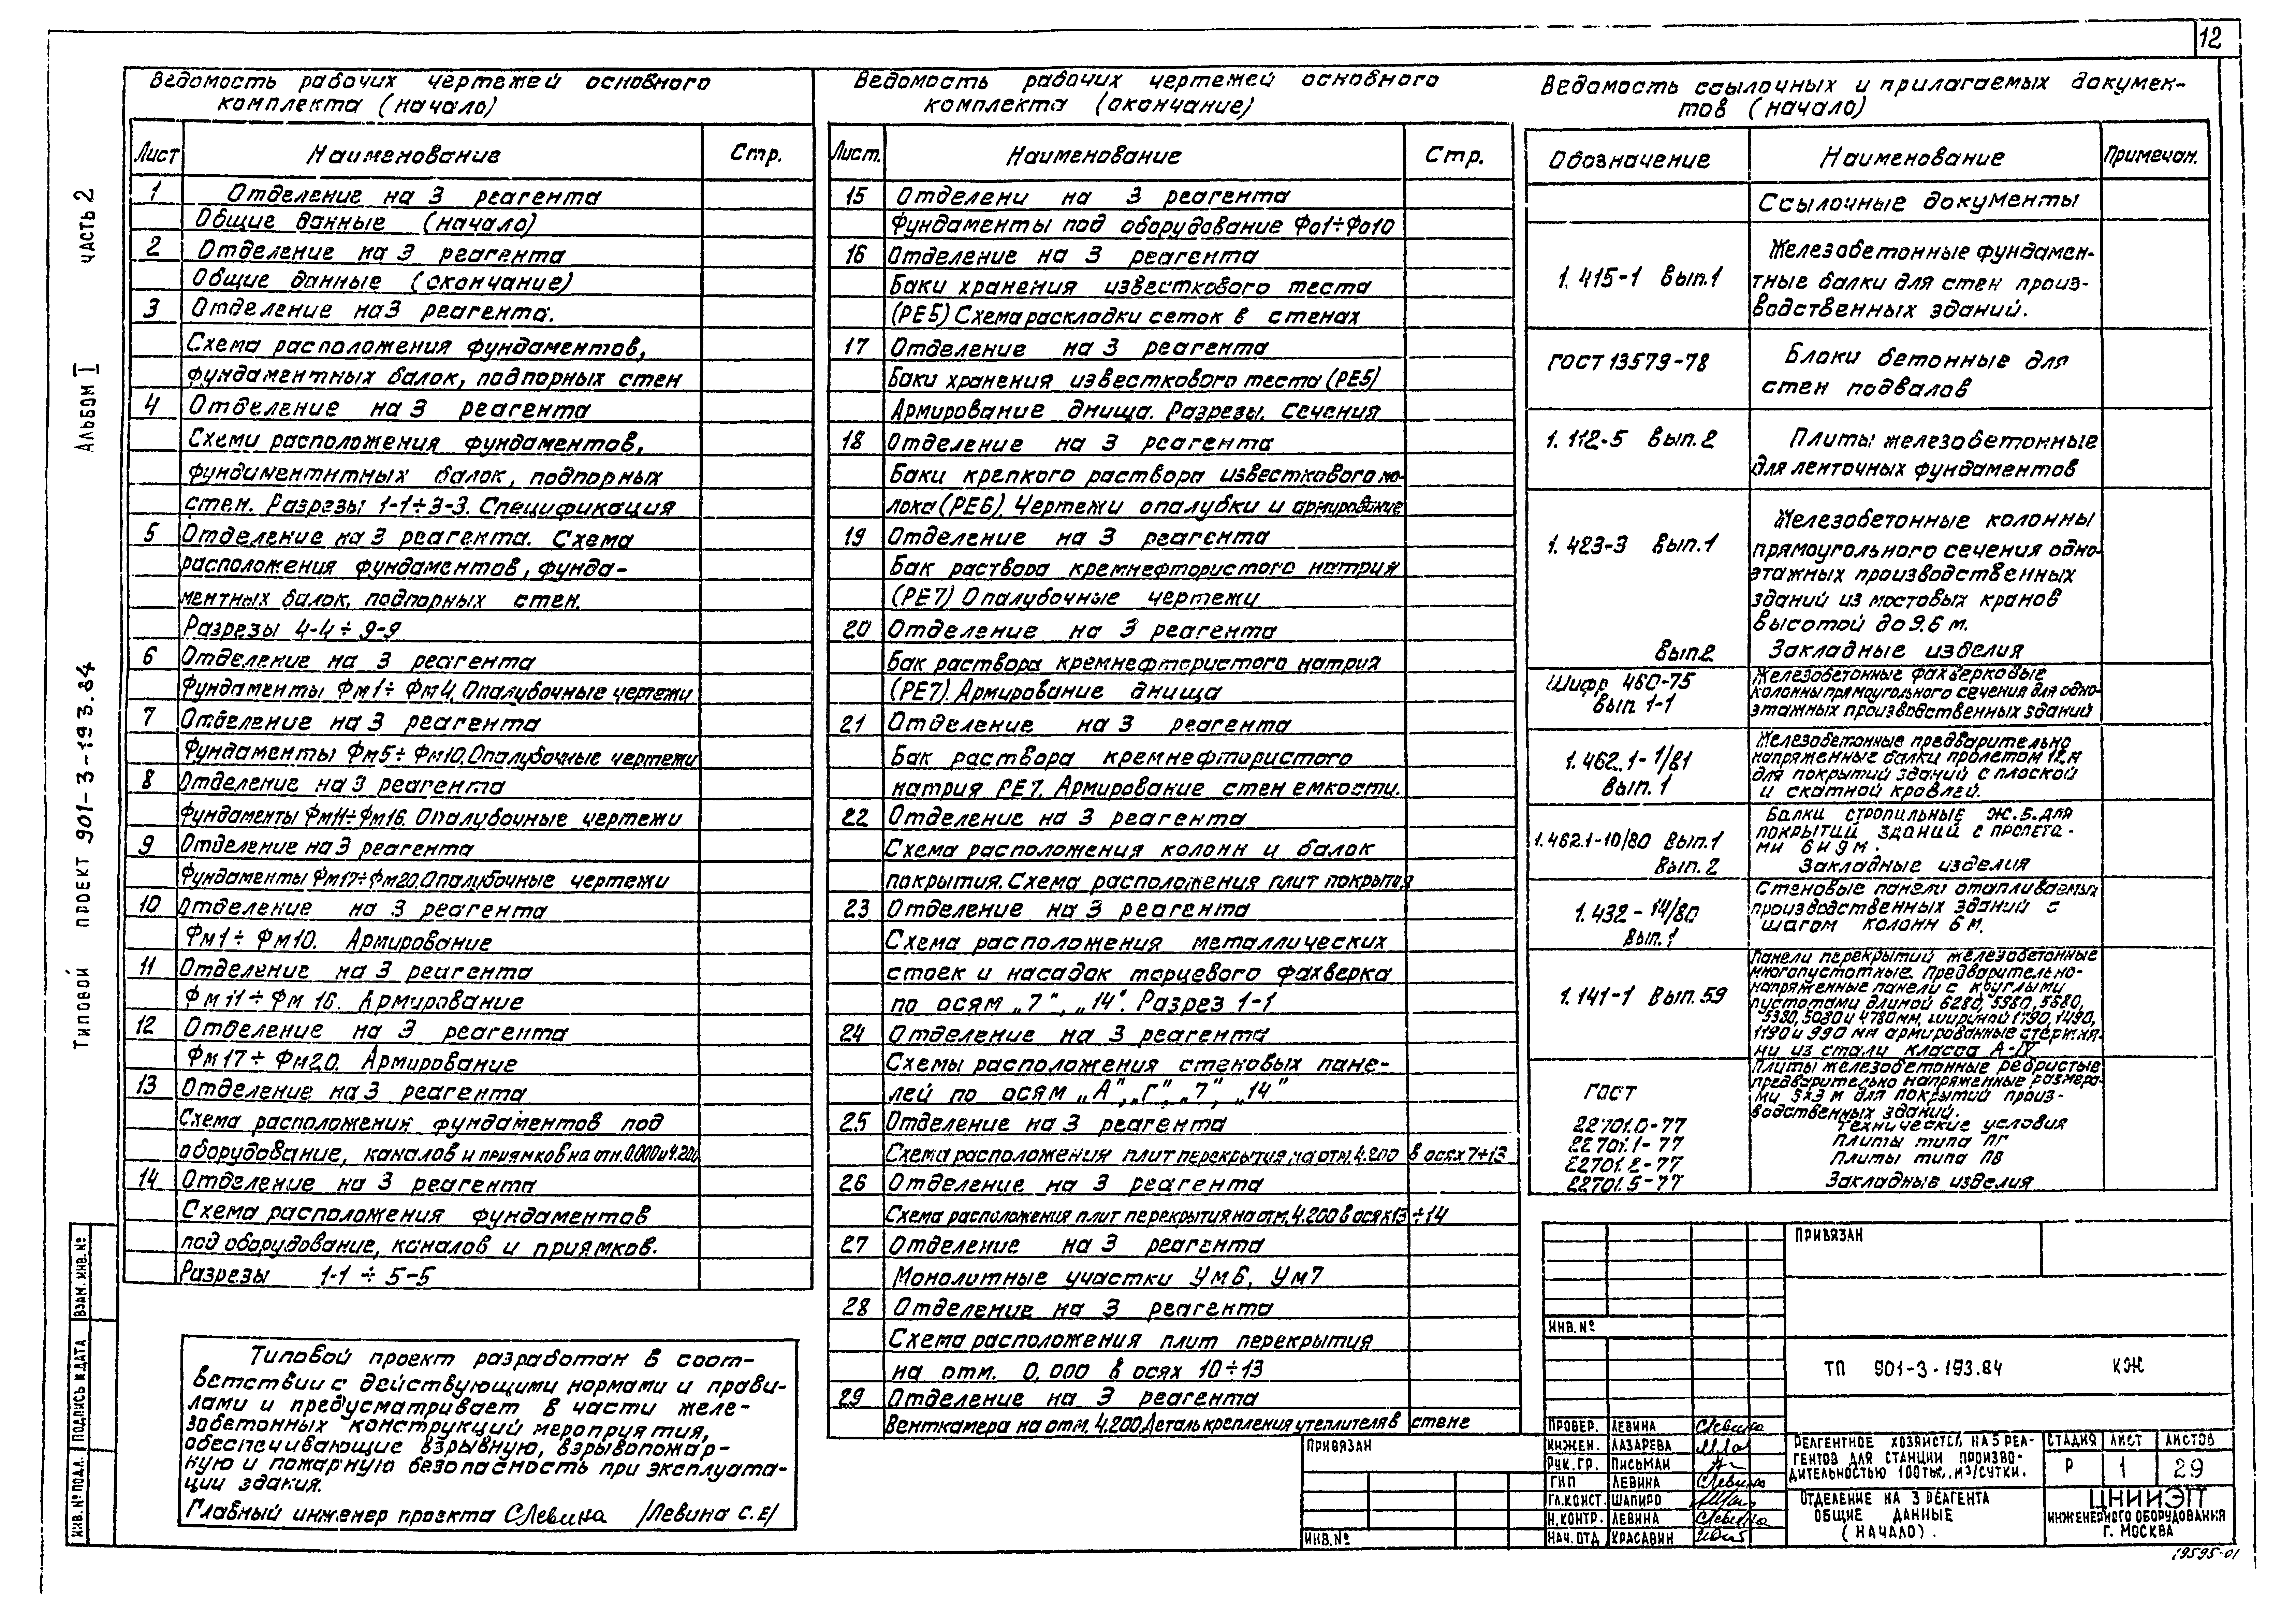 12
Ведомость рабочих чертежей основного
комплекта (начало)
Лист Наименование Стр.
1 Отделение на 3 реагента
Общие данные (начало)
2 Отделение на 3 реагента
Общие данные (окончание)
3 Отделение на 3 реагента.
Схема расположения фундаментов,
фундаментных балок, подпорных стен
4 Отделение на 3 реагента
Схеми расположения фундаментов,
фундиментнтных балок, подпорных
стен. Разрезы 1-1÷3-3. Спецификация
5 Отделение на 3 реагента. Схема
расположения фундаментов, фунда-
ментных балок, подпорных стен.
Разрезы 4-4÷9-9
6 Отделение на 3 реагента
Фундаменты Фм1÷Фм4. Опалубочные чертежи
7 Отделение на 3 реагента
Фундаменты Фм5÷Фм10. Опалубочные чертежи
8 Отделение на 3 реагента
Фундаменты Фм11÷Фм16. Опалубочные чертежи
9 Отделение на 3 реагента
Фундаменты Фм17÷Фм20. Опалубочные чертежи
10 Отделение на 3 реагента
Фм1÷Фм10. Армирование
11 Отделение на 3 реагента
Фм11÷Фм16. Армирование
12 Отделение на 3 реагента
Фм17÷Фм20. Армирование
13 Отделение на 3 реагента
Схема расположения фундаментов под
оборудование, каналов и приямков на отм. 0.000 и 4.200
14 Отделение на 3 реагента
Схема расположения фундаментов
под оборудование, каналов и приямков.
Разрезы 1-1÷5-5
Типовой проект разработан в соот-
ветствии с действующими нормами и прави-
лами и предусматривает в части желе-
зобетонных конструкций мероприятия,
обеспечивающие взрывную, взрывопожар-
ную и пожарную безопасность при эксплуата-
ции здания.
Главный инженер проекта СЛевина /Левина С.Е/
Ведомость рабочих чертежей основного
комплекта (окончание)
Лист. Наименование Стр.
15 Отделени на 3 реагента
Фундаменты под оборудование Фо1÷Фо10
16 Отделение на 3 реагента
Баки хранения известкового теста
(РЕ5) Схема раскладки сеток в стенах
17 Отделение на 3 реагента
Баки хранения известкового теста (РЕ5)
Армирование днища. Разрезы. Сечения
18 Отделение на 3 реагента
Баки крепкого раствора известкового мо-
лока (РЕ6). Чертежи опалубки и армирование
19 Отделение на 3 реагента
Бак раствора кремнефтористого натрия
(РЕ7) Опалубочные чертежи
20 Отделение на 3 реагента
Бак раствора кремнефтористого натрия
(РЕ7). Армирование днища
21 Отделение на 3 реагента
Бак раствора кремнефтористого
натрия РЕ7. Армирование стен емкости.
22 Отделение на 3 реагента
Схема расположения колонн и балок
покрытия. Схема расположения плит покрытия
23 Отделение на 3 реагента
Схема расположения металлических
стоек и насадок торцевого фахверка
по осям „7", „14". Разрез 1-1
24 Отделение на 3 реагента
Схемы расположения стеновых пане-
лей по осям „А", „Г", „7", „14"
25 Отделение на 3 реагента
Схема расположения плит перекрытия на отм. 4.200 в осях 7÷13
26 Отделение на 3 реагента
Схема расположения плит перекрытия на отм. 4.200 в осях 13÷14
27 Отделение на 3 реагента
Монолитные участки Ум6, Ум7
28 Отделение на 3 реагента
Схема расположения плит перекрытия
на отм. 0,000 в осях 10÷13
29 Отделение на 3 реагента
Венткамера на отм. 4.200. Деталь крепления утеплителя в стене
Ведомость ссылочных и прилагаемых докумен-
тов (начало)
Обозначение Наименование Примечан.
Ссылочные документы
1.415-1 вып.1 Железобетонные фундамен-
тные балки для стен произ-
водственных зданий.
ГОСТ 13579-78 Блоки бетонные для
стен подвалов
1.112-5 вып.2 Плиты железобетонные
для ленточных фундаментов
1.423-3 вып.1 Железобетонные колонны
прямоугольного сечения одно-
этажных производственных
зданий из мостовых кранов
высотой до 9.6 м.
вып.2 Закладные изделия
Шифр 460-75 вып 1-1 Железобетонные фахверковые
колонны прямоугольного сечения для одно-
этажных производственных зданий
1.462.1-1/81 вып.1 Железобетонные предварительно
напряженные балки пролетом 12 м
для покрытий зданий с плоской
и скатной кровлей.
1.462.1-10/80 вып.1 Балки стропильные Ж.Б. для
покрытий зданий с пролета-
ми 6 и 9 м.
вып.2 Закладные изделия
1.432-14/80 вып.1 Стеновые панели отапливаемых
производственных зданий с
шагом колонн 6 м.
1.141-1 вып.59 Панели перекрытий железобетонные
многопустотные. Предварительно-
напряженные панели с круглыми
пустотами длиной 6280, 5980, 5680,
5380, 5080 и 4780мм, шириной 1790, 1490,
1190 и 990 мм армированные стержня-
ми из стали класса А-IV
ГОСТ Плиты железобетонные ребристые
предварительно напряженные размера-
ми 3х3 м для покрытий произ-
водственных зданий.
22701.0-77 Технические условия
22701.1-77 Плиты типа ПГ
22701.2-77 Плиты типа ПВ
22701.5-77 Закладные изделия
ПРИВЯЗАН
ИНВ.№
ТП 901-3-193.84 КЖ
ПРОВЕР. ЛЕВИНА СЛевина
ИНЖЕН. ЛАЗАРЕВА
РУК.ГР. ПИСЬМАН
ГИП ЛЕВИНА СЛевина
ГЛ.КОНСТ. ШАПИРО
Н.КОНТР. ЛЕВИНА СЛевина
НАЧ.ОТД КРАСАВИН
РЕАГЕНТНОЕ ХОЗЯЙСТВО НА 5 РЕА-
ГЕНТОВ ДЛЯ СТАНЦИИ ПРОИЗВО-
ДИТЕЛЬНОСТЬЮ 100 ТЫС. М³/СУТКИ.
СТАДИЯ ЛИСТ ЛИСТОВ
Р 1 29
ОТДЕЛЕНИЕ НА 3 РЕАГЕНТА
ОБЩИЕ ДАННЫЕ
(НАЧАЛО).
ЦНИИЭП
ИНЖЕНЕРНОГО ОБОРУДОВАНИЯ
Г. МОСКВА
19595-01
ПРИВЯЗАН
ИНВ.№
ТИПОВОЙ ПРОЕКТ 901-3-193.84 АЛЬБОМ I ЧАСТЬ 2
ИНВ.№ПОДЛ. ПОДПИСЬ И ДАТА ВЗАМ.ИНВ.№